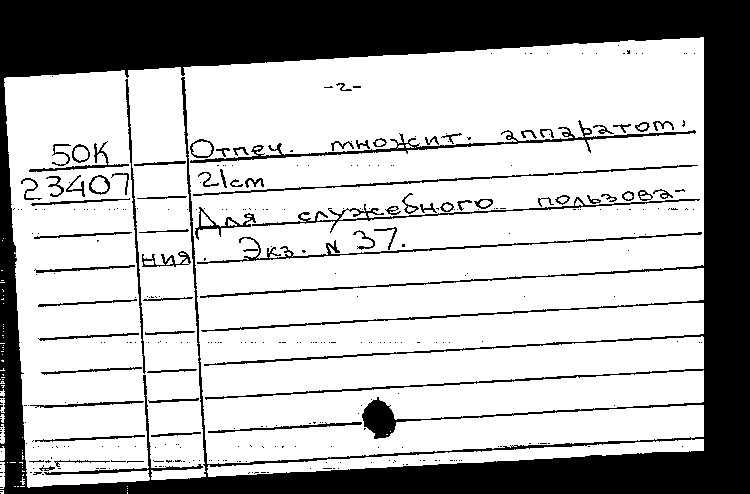 -2-
50К Отпеч. множит. аппаратом.
23407 21cm
Для служебного пользова-
ния. Экз. № 37.